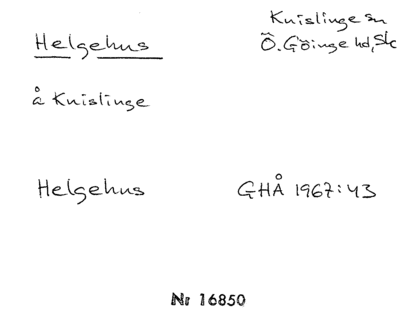 Knislinge sn
Helgehus Ö. Göinge hd, Sk
å Knislinge
Helgehus GHÅ 1967:43
Nr 16850